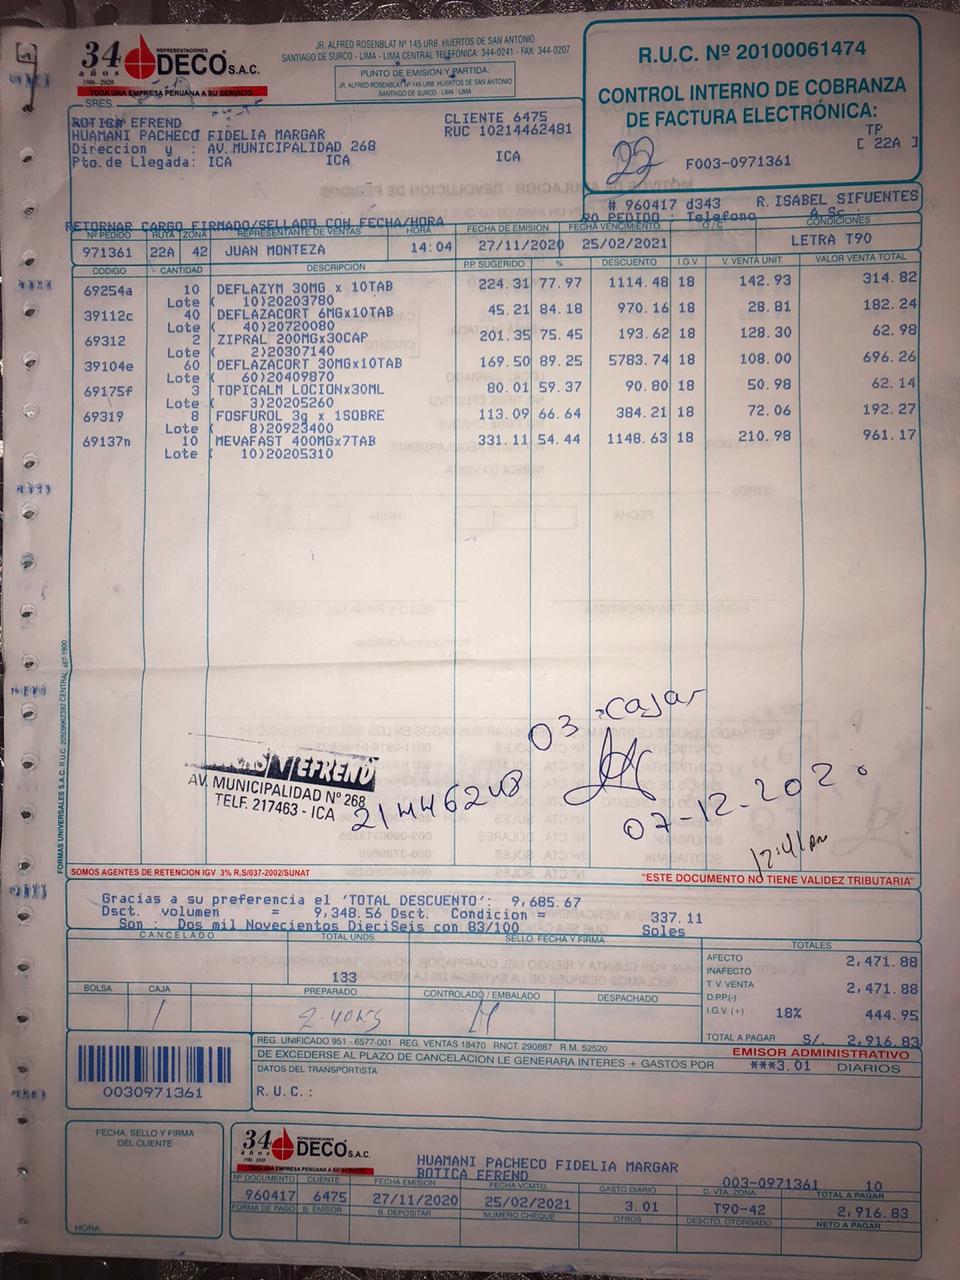 34 años 1986-2020 REPRESENTACIONES DECO S.A.C.
TODA UNA EMPRESA PERUANA A SU SERVICIO
JR. ALFRED ROSENBLAT Nº 145 URB. HUERTOS DE SAN ANTONIO
SANTIAGO DE SURCO - LIMA - LIMA CENTRAL TELEFONICA: 344-0241 - FAX: 344-0207
PUNTO DE EMISION Y PARTIDA:
JR. ALFRED ROSENBLAT Nº 145 URB. HUERTOS DE SAN ANTONIO
SANTIAGO DE SURCO - LIMA - LIMA
R.U.C. Nº 20100061474
CONTROL INTERNO DE COBRANZA
DE FACTURA ELECTRÓNICA:
TP
[ 22A ]
22 F003-0971361
SRES.
BOTICA EFREND CLIENTE 6475
HUAMANI PACHECO FIDELIA MARGAR RUC 10214462481
Direccion y : AV.MUNICIPALIDAD 268
Pto.de Llegada: ICA ICA ICA
# 960417 d343 R. ISABEL SIFUENTES
RETORNAR CARGO FIRMADO/SELLADO CON FECHA/HORA PEDIDO : Telefono
Nº PEDIDO RUTA ZONA REPRESENTANTE DE VENTAS HORA FECHA DE EMISION FECHA VENCIMIENTO O/C CONDICIONES
971361 22A 42 JUAN MONTEZA 14:04 27/11/2020 25/02/2021 LETRA T90
CODIGO CANTIDAD DESCRIPCION P.P. SUGERIDO % DESCUENTO I.G.V V. VENTA UNIT. VALOR VENTA TOTAL
69254a 10 DEFLAZYM 30MG x 10TAB 224.31 77.97 1114.48 18 142.93 314.82
Lote ( 10)20203780
39112c 40 DEFLAZACORT 6MGx10TAB 45.21 84.18 970.16 18 28.81 182.24
Lote ( 40)20720080
69312 2 ZIPRAL 200MGx30CAP 201.35 75.45 193.62 18 128.30 62.98
Lote ( 2)20307140
39104e 60 DEFLAZACORT 30MGx10TAB 169.50 89.25 5783.74 18 108.00 696.26
Lote ( 60)20409870
69175f 3 TOPICALM LOCIONx30ML 80.01 59.37 90.80 18 50.98 62.14
Lote ( 3)20205260
69319 8 FOSFUROL 3g x 1SOBRE 113.09 66.64 384.21 18 72.06 192.27
Lote ( 8)20923400
69137n 10 MEVAFAST 400MGx7TAB 331.11 54.44 1148.63 18 210.98 961.17
Lote ( 10)20205310
03 cajas
EFREND
AV. MUNICIPALIDAD Nº 268
TELF. 217463 - ICA
21446248
07-12-2020
12:41 pm
FORMAS UNIVERSALES S.A.C. R.U.C.
SOMOS AGENTES DE RETENCION IGV 3% R.S/037-2002/SUNAT
"ESTE DOCUMENTO NO TIENE VALIDEZ TRIBUTARIA"
Gracias a su preferencia el 'TOTAL DESCUENTO': 9,685.67
Dsct. volumen = 9,348.56 Dsct. Condicion = 337.11
Son : Dos mil Novecientos DieciSeis con 83/100 Soles
CANCELADO TOTAL UNDS SELLO, FECHA Y FIRMA TOTALES
133
AFECTO 2,471.88
INAFECTO
T.V. VENTA 2,471.88
D.P.P(-)
I.G.V. (+) 18% 444.95
TOTAL A PAGAR S/. 2,916.83
BOLSA CAJA PREPARADO CONTROLADO / EMBALADO DESPACHADO
1 2.40 KS
REG. UNIFICADO 951 - 6577-001 REG. VENTAS 18470 RNCT. 290887 R.M. 52520
EMISOR ADMINISTRATIVO
DE EXCEDERSE AL PLAZO DE CANCELACION LE GENERARA INTERES + GASTOS POR ***3.01 DIARIOS
DATOS DEL TRANSPORTISTA
R.U.C.:
0030971361
FECHA, SELLO Y FIRMA
DEL CLIENTE
HORA:
34 años 1986-2020 REPRESENTACIONES DECO S.A.C.
TODA UNA EMPRESA PERUANA A SU SERVICIO
HUAMANI PACHECO FIDELIA MARGAR
BOTICA EFREND 003-0971361 10
Nº DOCUMENTO CLIENTE FECHA EMISION FECHA VCMTO. GASTO DIARIO C. VTA. ZONA TOTAL A PAGAR
960417 6475 27/11/2020 25/02/2021 3.01 T90-42 2,916.83
FORMA DE PAGO B. EMISOR B. DEPOSITAR NUMERO CHEQUE OTROS DESCTO. OTORGADO NETO A PAGAR